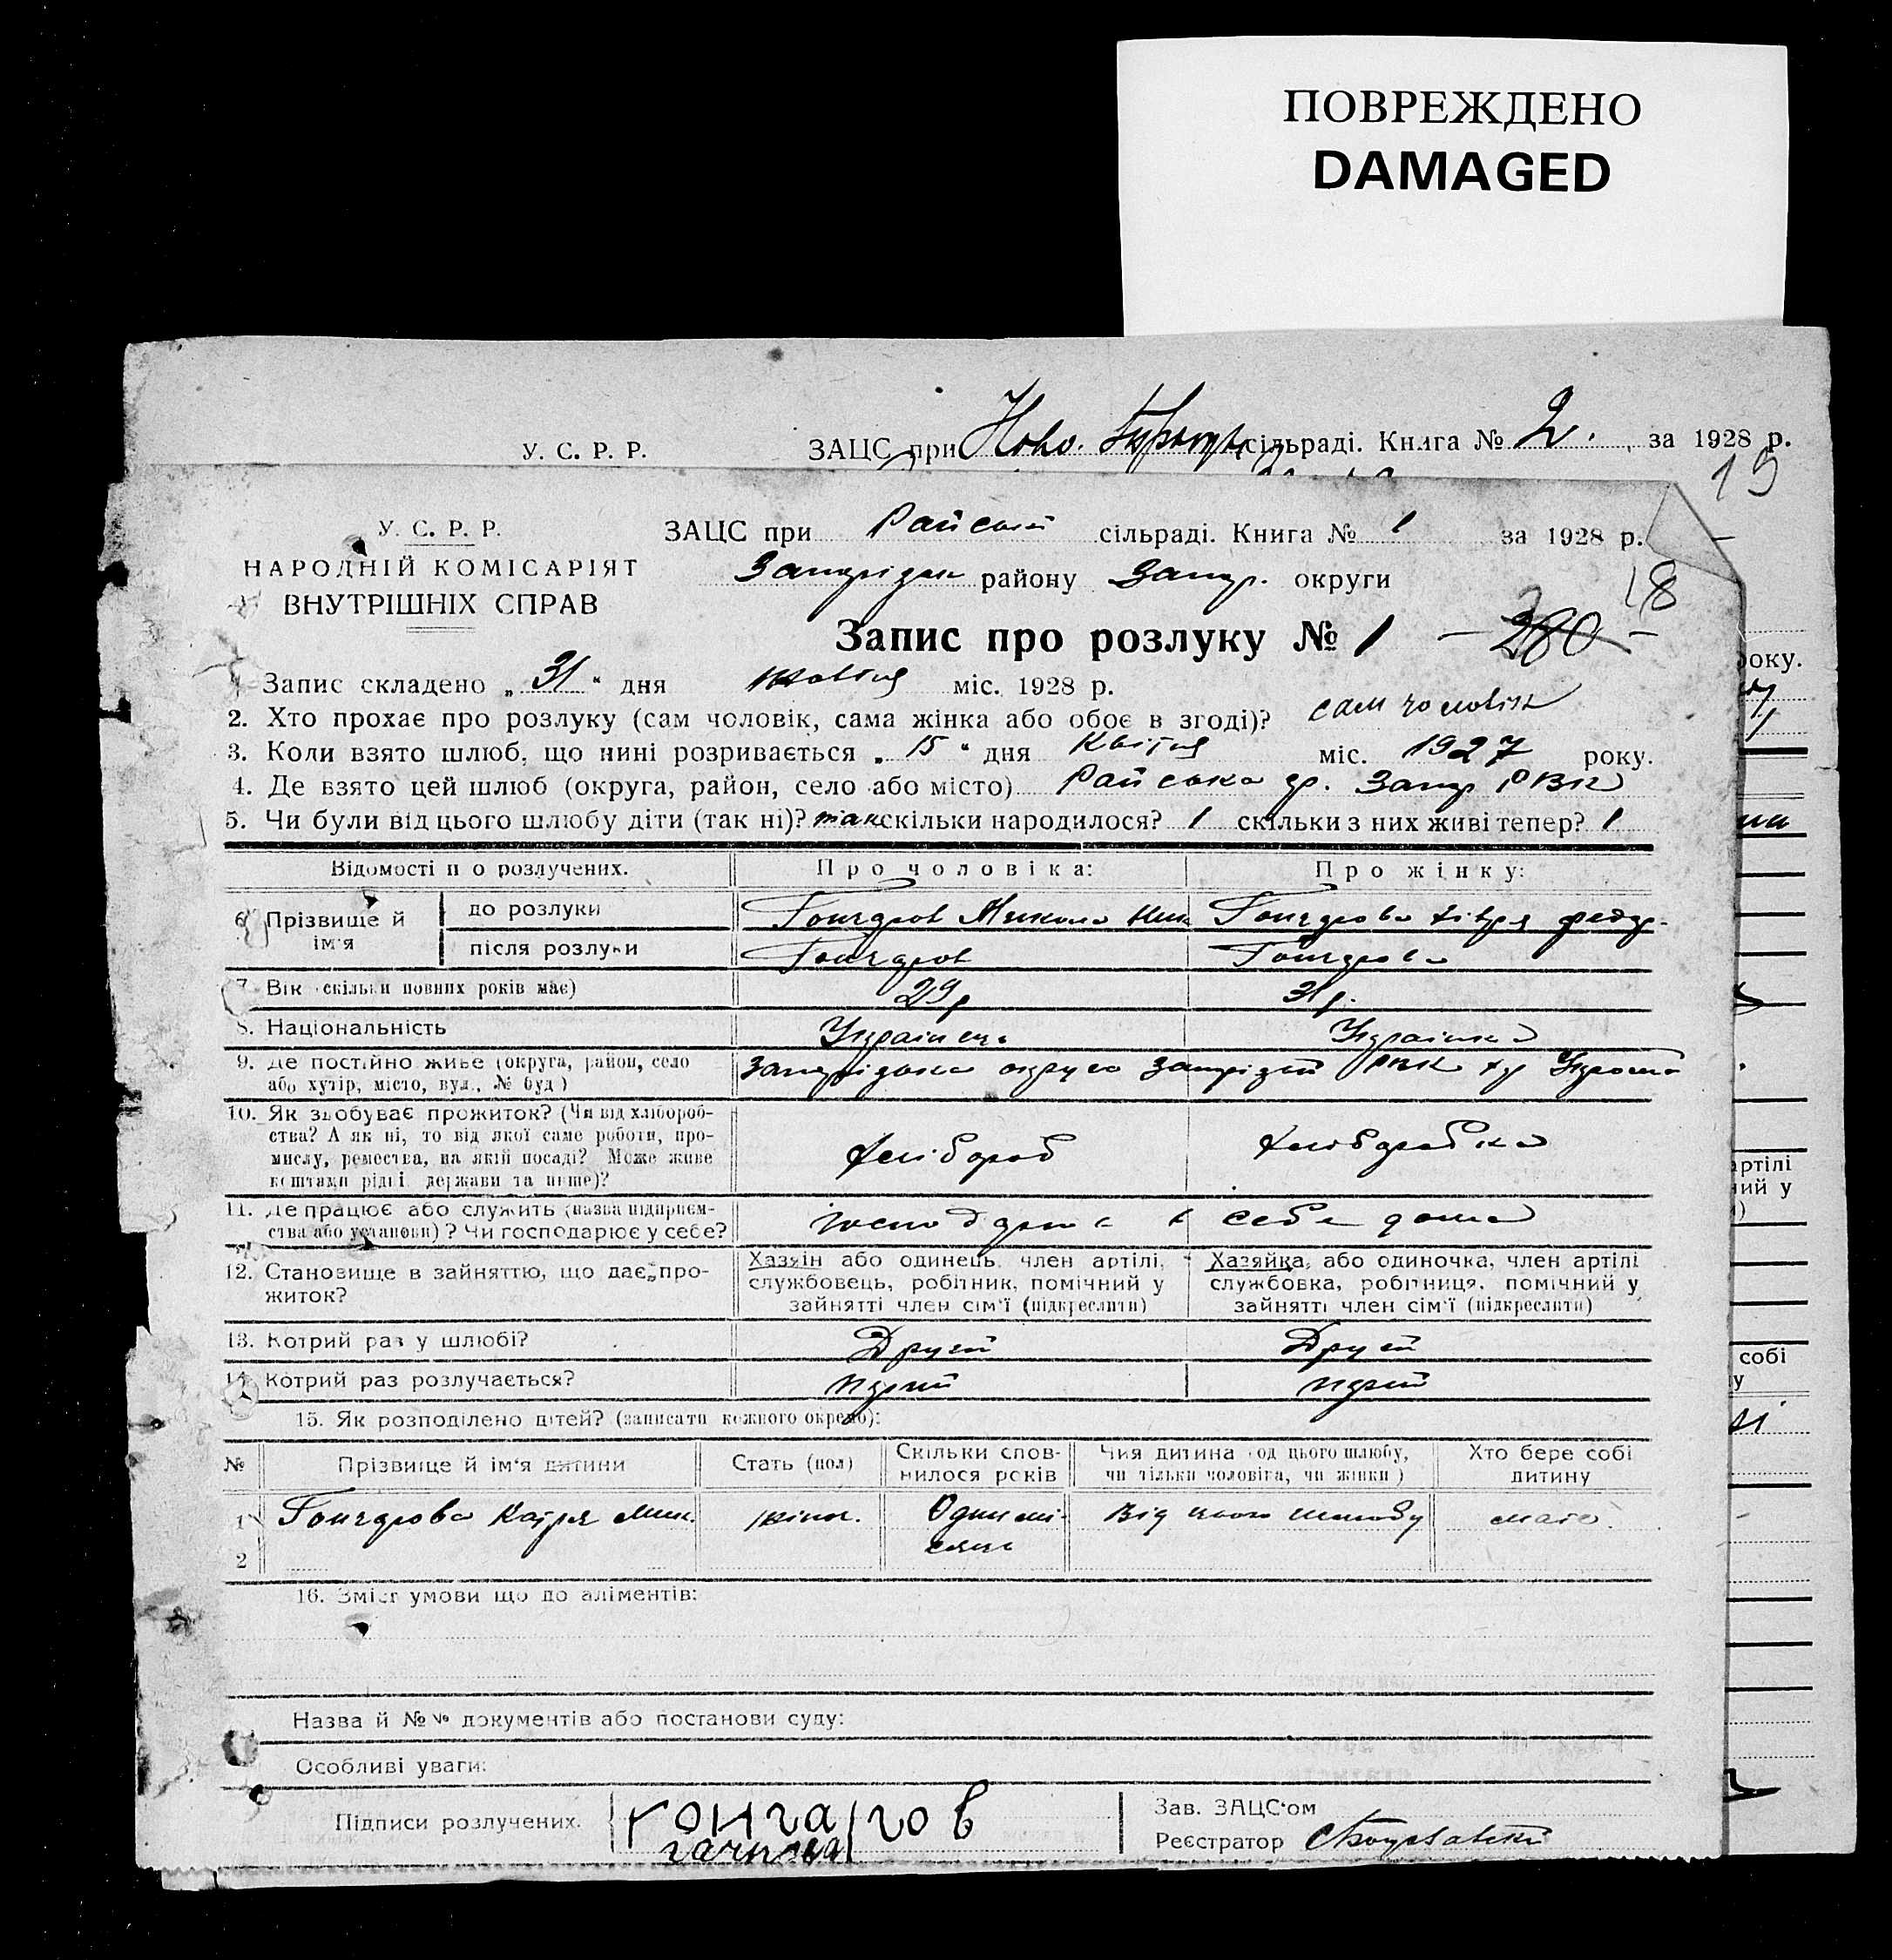 ПОВРЕЖДЕНО
DAMAGED
У. С. Р. Р. ЗАЦС при Ново. сільраді. Книга № 2. за 1928 р.
19
У. С. Р. Р. ЗАЦС при Райській сільраді. Книга № 1 за 1928 р.
НАРОДНІЙ КОМІСАРІЯТ району Запор. округи
ВНУТРІШНІХ СПРАВ 18
Запис про розлуку № 1 280
1. Запис складено „ 31 “ дня жовтня міс. 1928 р.
2. Хто прохає про розлуку (сам чоловік, сама жінка або обоє в згоді)? сам чоловік
3. Коли взято шлюб, що нині розривається „ 15 “ дня Квітня міс. 1927 року.
4. Де взято цей шлюб (округа, район, село або місто) Райська ср. Запор РВК
5. Чи були від цього шлюбу діти (так ні)? так скільки народилося? 1 скільки з них живі тепер? 1
Відомості про розлучених. Про чоловіка: Про жінку:
6. Прізвище й ім'я до розлуки Гончаров Микола Ник Гончарова Федор.
після розлуки Гончаров Гончарова
7. Вік (скільки повних років має) 29 р 31 р.
8. Національність Українець Українка
9. Де постійно живе (округа, район, село
або хутір, місто, вул., № буд) округа РВК
10. Як здобуває прожиток? (Чи від хлібороб-
ства? А як ні, то від якої саме роботи, про-
мислу, ремества, на якій посаді? Може живе
коштами рідні держави та инше)? Хлібороб Хліборобка
11. Де працює або служить (назва підприєм-
ства або установи)? Чи господарює у себе? в себе дома
12. Становище в зайняттю, що дає про-
житок?
Хазяін або одинець, член артілі,
службовець, робітник, помічний у
зайнятті член сім'ї (підкреслити)
Хазяйка, або одиночка, член артілі
службовка, робітниця, помічний у
зайнятті член сім'ї (підкреслити)
13. Котрий раз у шлюбі? Другий Другий
14. Котрий раз розлучається?
15. Як розподілено дітей? (записати кожного окремо):
№ Прізвище й ім'я дитини Стать (пол) Скільки спов-
нилося років Чия дитина (од цього шлюбу,
чи тільки чоловіка, чи жінки) Хто бере собі
дитину
1 Гончарова Катря Мик. жіноч. Один мі-
сяць Від цього шлюбу мате.
2
16. Зміст умови що до аліментів:
Назва й №№ документів або постанови суду:
Особливі уваги:
Підписи розлучених. гончаров
Зав. ЗАЦС'ом
Реєстратор
року.
артілі
ний у
собі
у